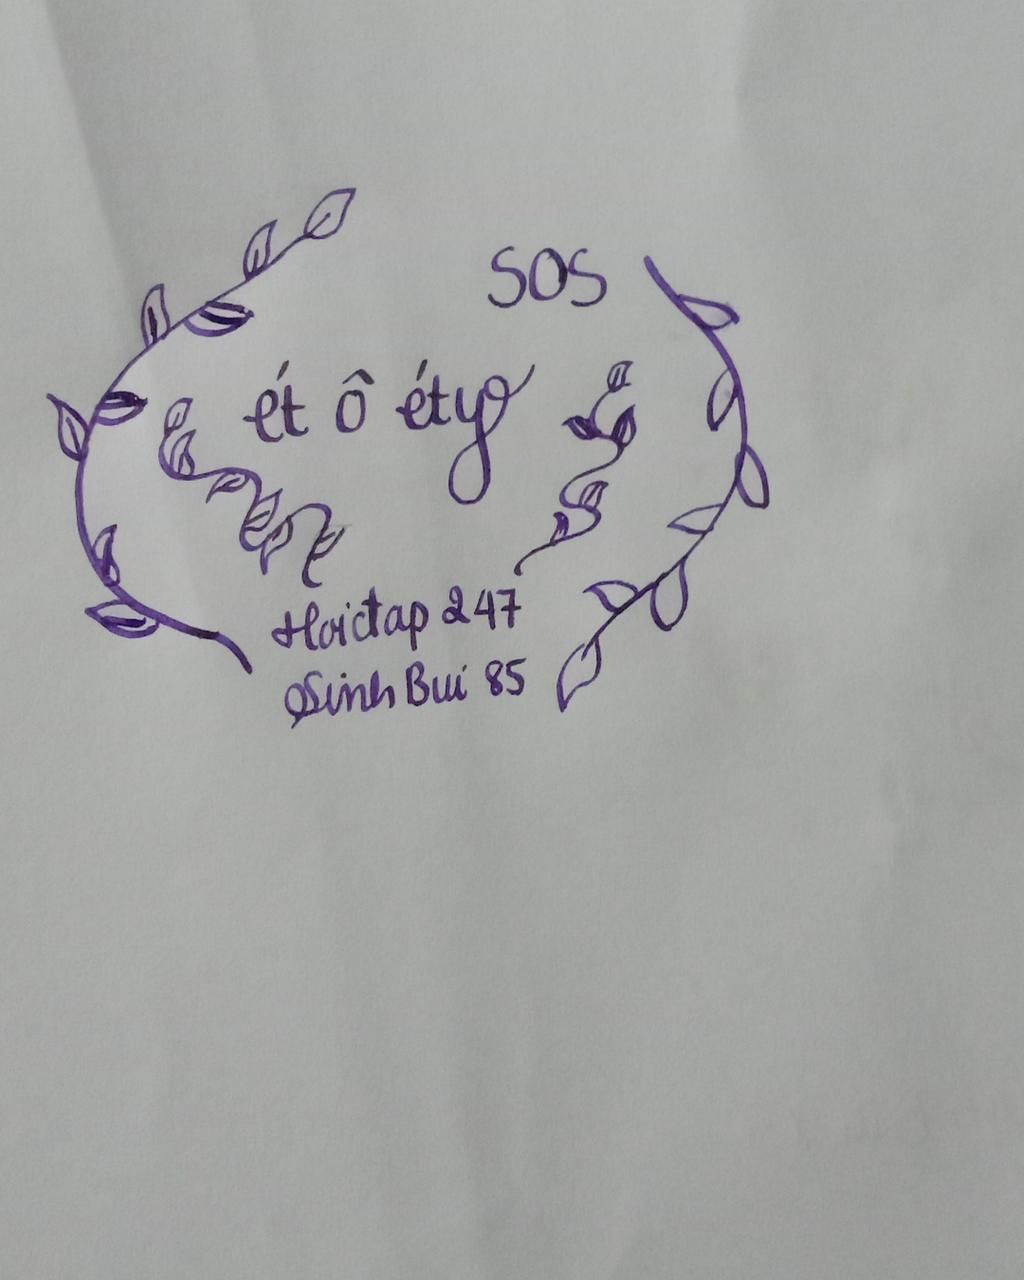 SOS
ét ô ét
Hoidap 247
Sinh Bui 85